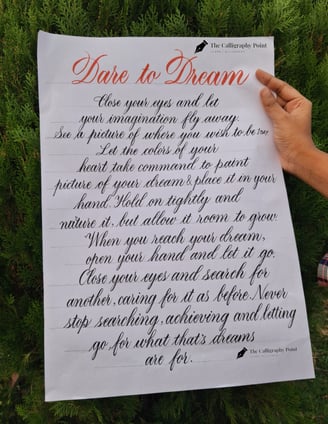 The Calligraphy Point
Dare to Dream
Close your eyes and let
your imagination fly away.
See a picture of where you wish to be
Let the colors of your
heart take command to paint
picture of your dream & place it in your
hand. Hold on tightly and
nature it, but allow it room to grow.
When you reach your dream,
open your hand and let it go.
Close your eyes and search for
another, caring for it as before. Never
stop searching, achieving and letting
go for what that's dreams
are for.
The Calligraphy Point